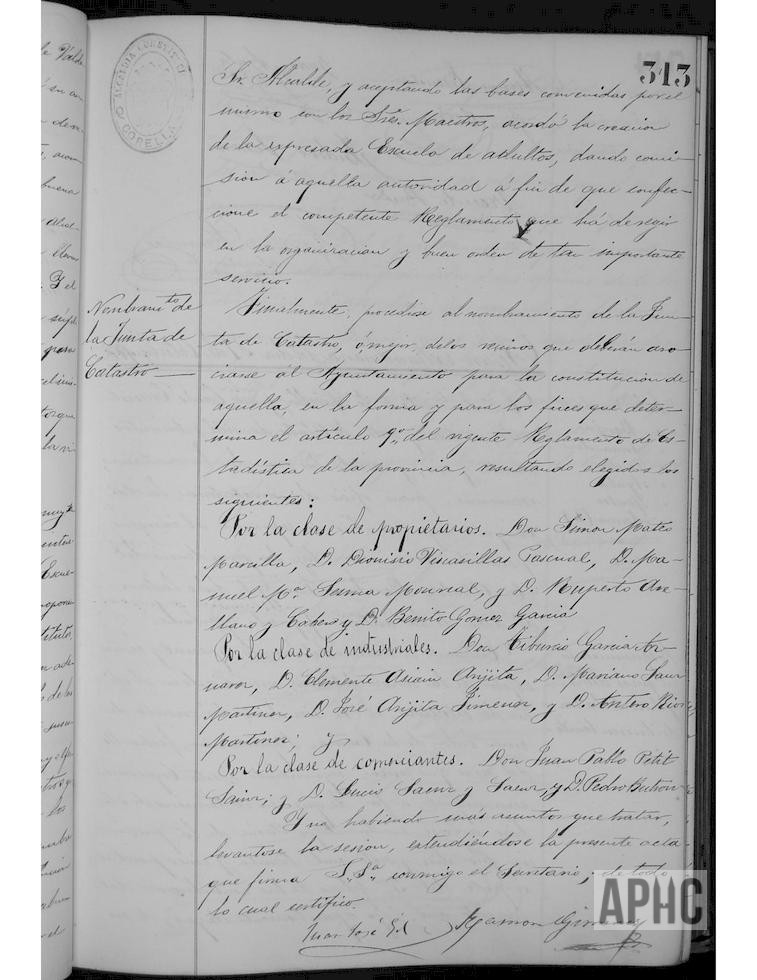 313
ALCALDIA CONSTITUCI
CORELLA
Sr. Alcalde, y aceptando las bases convenidas por el
mismo con los Sres. Maestros, acordó la creacion
de la expresada Escuela de adultos, dando comi-
sion á aquella autoridad á fin de que confec-
cione el competente Reglamento que há de regir
en la organizacion y buen orden de tan importante
servicio.
Nombramto. de
la Junta de
Catastro
Finalmente, procediose al nombramiento de la Jun-
ta de Catastro, ó, mejor, de los vecinos que deberán aso-
ciarse al Ayuntamiento para la constitucion de
aquella, en la forma y para los fines que deter-
mina el artículo 9º del vigente Reglamento de Es-
tadística de la provincia, resultando elegidos los
siguientes:
Por la clase de propietarios. Don Simon Mateo
Marcilla, D. Dionisio Viscasillas Pascual, D. Ma-
nuel Mª Sesma Monreal, y D. Ruperto Are-
llano y y D. Benito Gomez Garcia
Por la clase de industriales. Don Tiburcio Garcia
D. Clemente Asiain Arijita, D. Mariano
Martinez, D. José Arijita Jimenez, y D. Antero
Martinez; y
Por la clase de comerciantes. Don Juan Pablo Petit
Sainz; y D. Lucio Saenz y Saenz, y D. Pedro Butron
Y no habiendo más asuntos que tratar,
levantose la sesion, extendiéndose la presente acta
que firma S. Sª conmigo el Secretario; de todo
lo cual certifico.
Juan José Gil
Ramon Gimenez
APHC